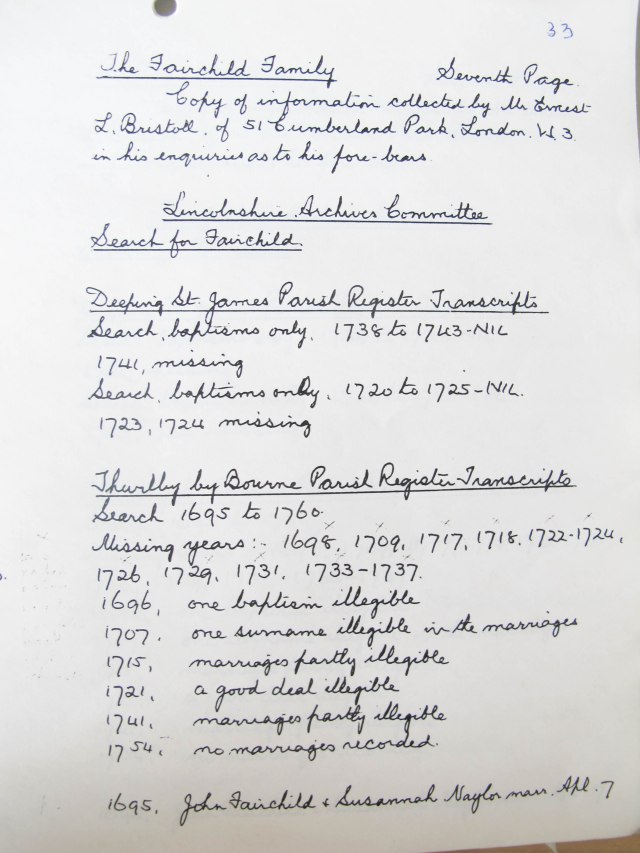 33
The Fairchild Family Seventh Page.
Copy of information collected by Mr Ernest
L. Bristoll, of 51 Cumberland Park, London. W.3.
in his enquiries as to his fore-bears.
Lincolnshire Archives Committee
Search for Fairchild.
Deeping St. James Parish Register Transcripts
Search, baptisms only, 1738 to 1743-NIL
1741, missing
Search, baptisms only, 1720 to 1725-NIL.
1723, 1724 missing
Thurlby by Bourne Parish Register Transcripts
Search 1695 to 1760.
Missing years:- 1698, 1709, 1717, 1718, 1722-1724,
1726, 1729, 1731, 1733-1737.
1696, one baptism illegible
1707. one surname illegible in the marriages
1715, marriages partly illegible
1721, a good deal illegible
1741, marriages partly illegible
1754, no marriages recorded.
1695, John Fairchild & Susannah Naylor marr. Apl. 7